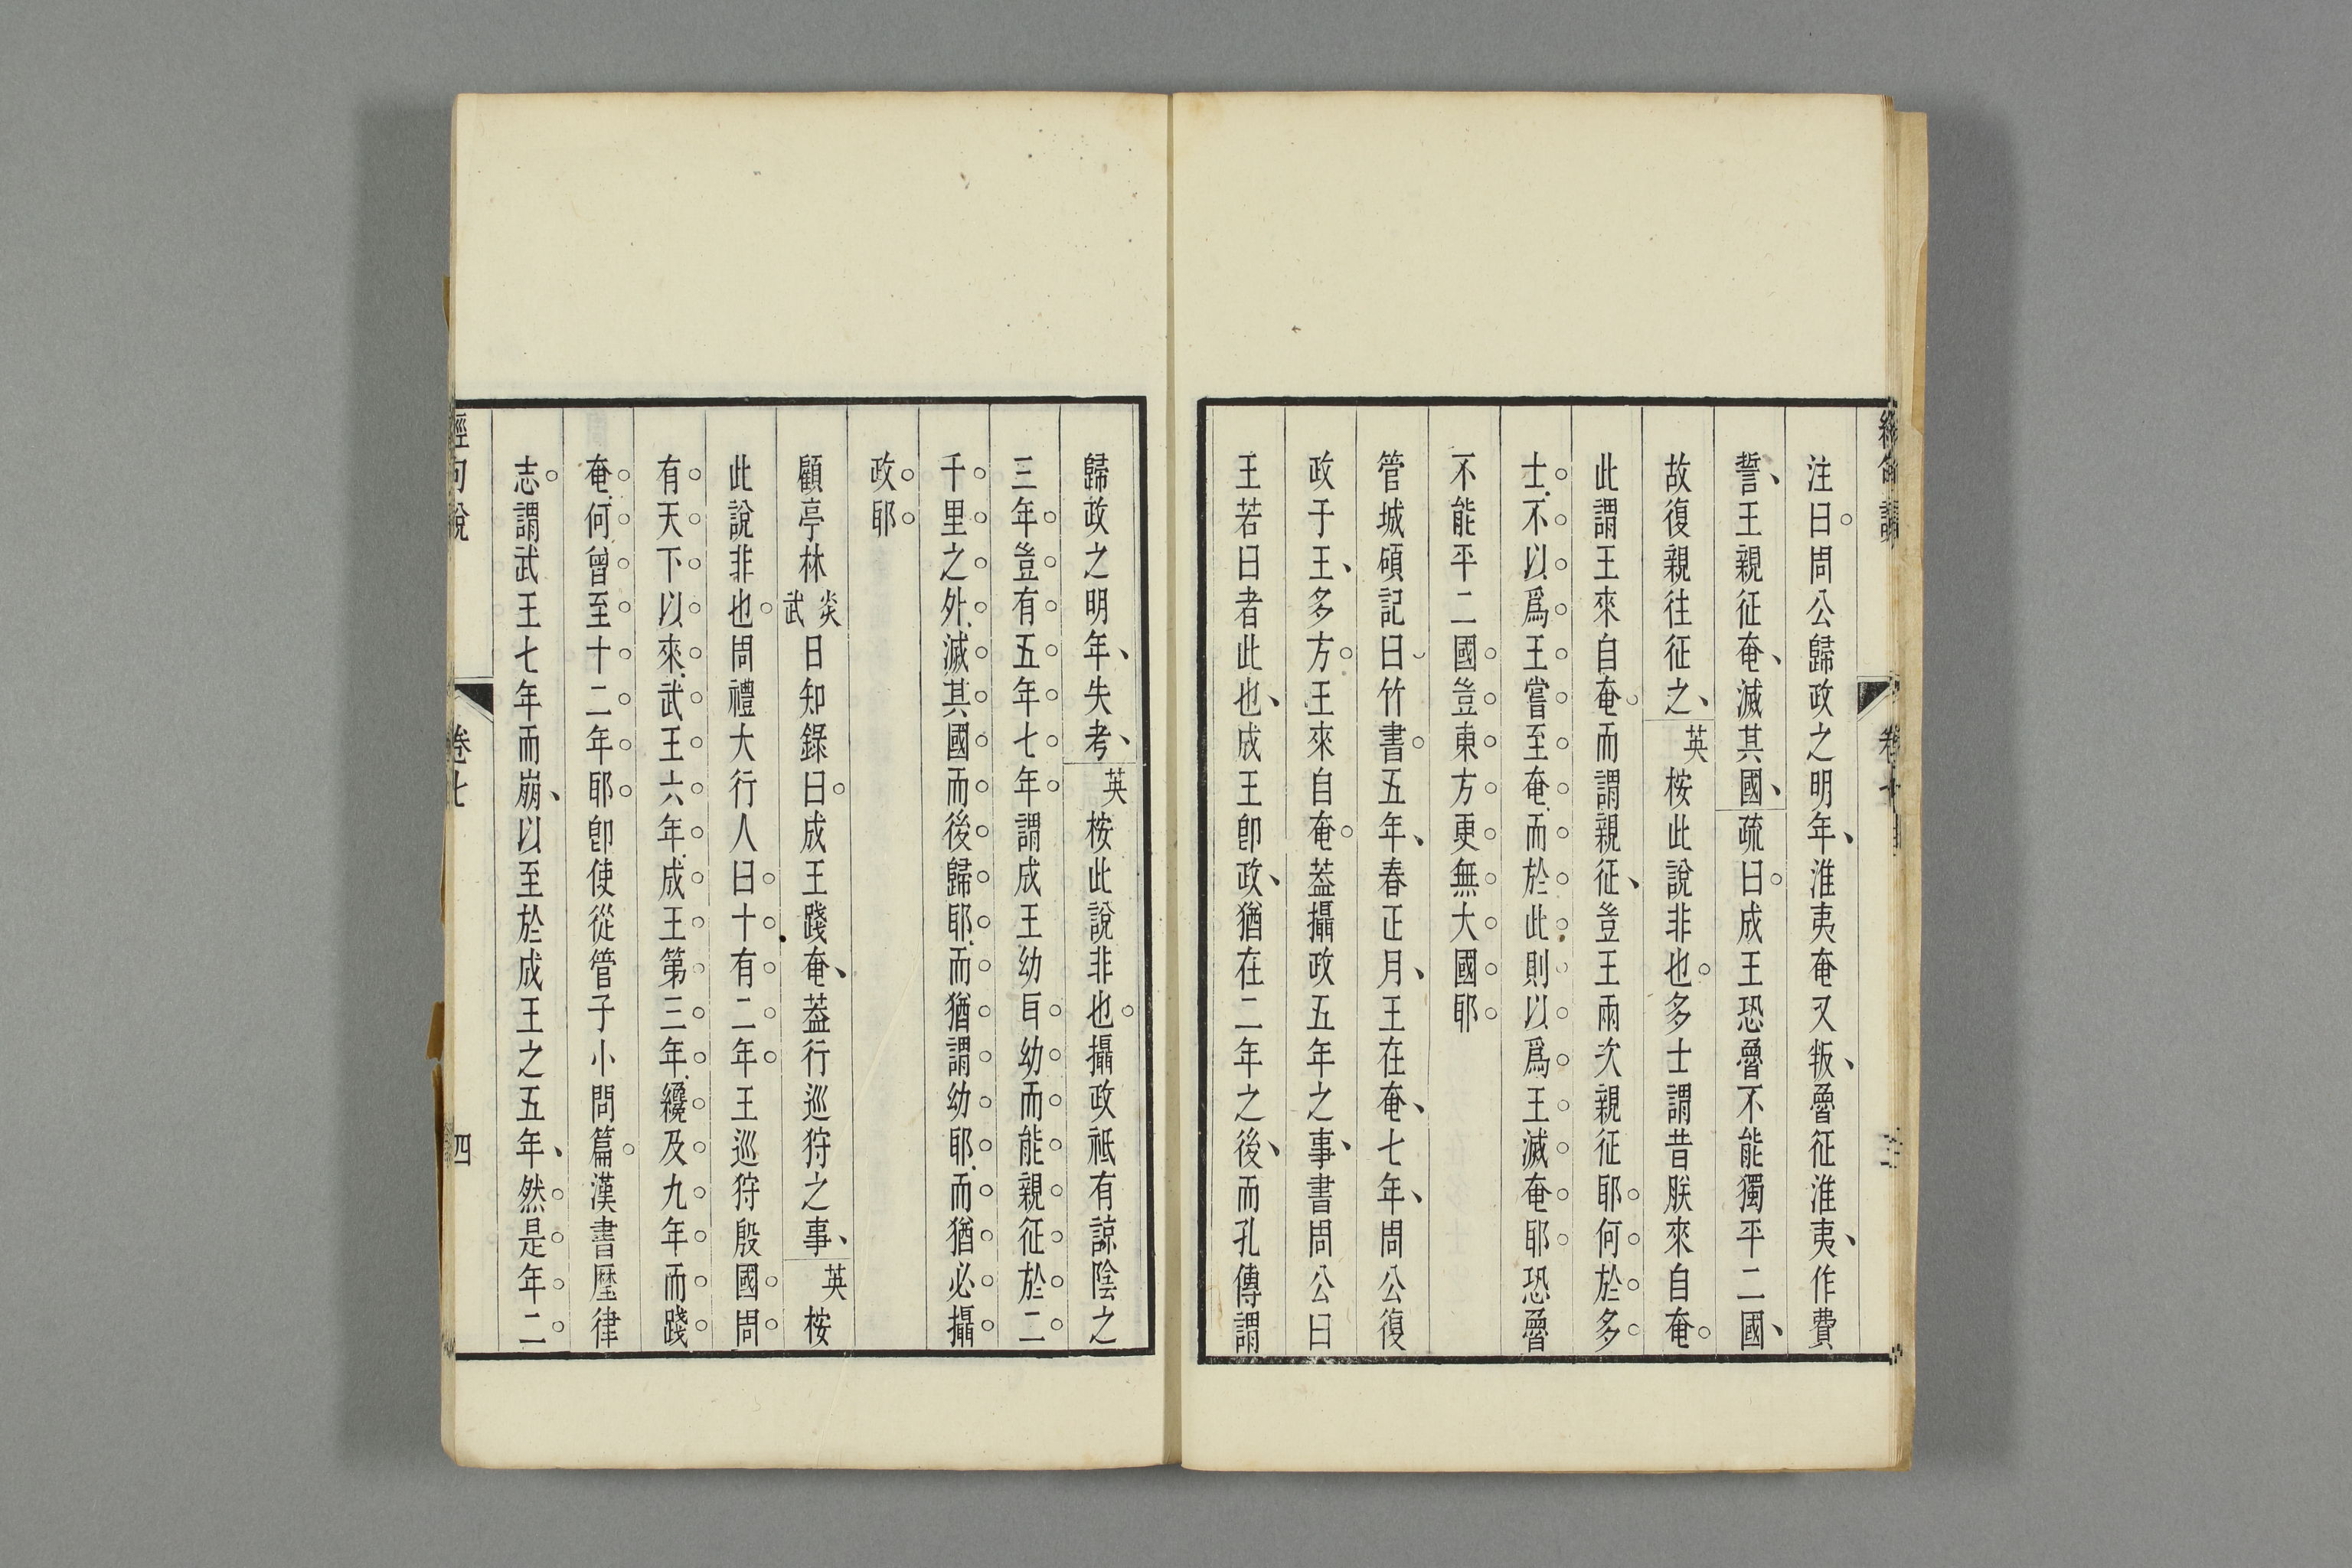 注曰。周公歸政之明年、淮夷奄又叛、魯征淮夷、作費
誓、王親征奄、滅其國、疏曰。成王恐魯不能獨平二國、
故復親往征之、英桉此說非也。多士謂昔朕來自奄。
此謂王來自奄。而謂親征、豈王兩次親征耶何於多
士不以爲王嘗至奄而於此則以爲王滅奄耶恐魯
不能平二國豈東方更無大國耶
管城碩記曰竹書五年、春正月、王在奄、七年、周公復
政于王、多方。王來自奄。蓋攝政五年之事、書周公曰
王若曰者此也、成王卽政、猶在二年之後、而孔傳謂
歸政之明年、失考、英桉此說非也。攝政祇有諒陰之
三年豈有五年七年謂成王幼㠯幼而能親征於二
千里之外滅其國而後歸耶而猶謂幼耶而猶必攝
政耶
顧亭林炎武日知錄曰。成王踐奄、蓋行巡狩之事、英桉
此說非也。周禮大行人曰十有二年王巡狩殷國周
有天下以來武王六年成王第三年纔及九年而踐
奄何曾至十二年耶卽使從管子小問篇。漢書歷律
志。謂武王七年而崩、以至於成王之五年、然是年二
經句說
卷七
四